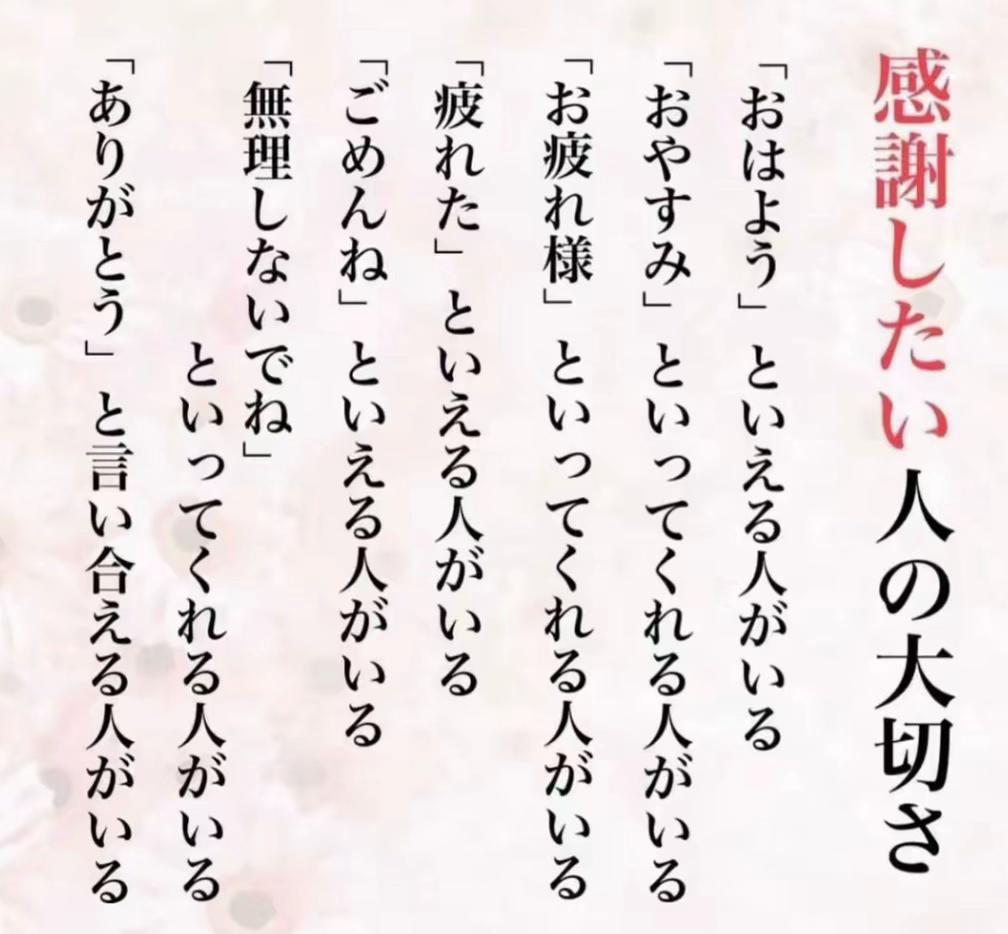 感謝したい人の大切さ
「おはよう」といえる人がいる
「おやすみ」といってくれる人がいる
「お疲れ様」といってくれる人がいる
「疲れた」といえる人がいる
「ごめんね」といえる人がいる
「無理しないでね」
といってくれる人がいる
「ありがとう」と言い合える人がいる